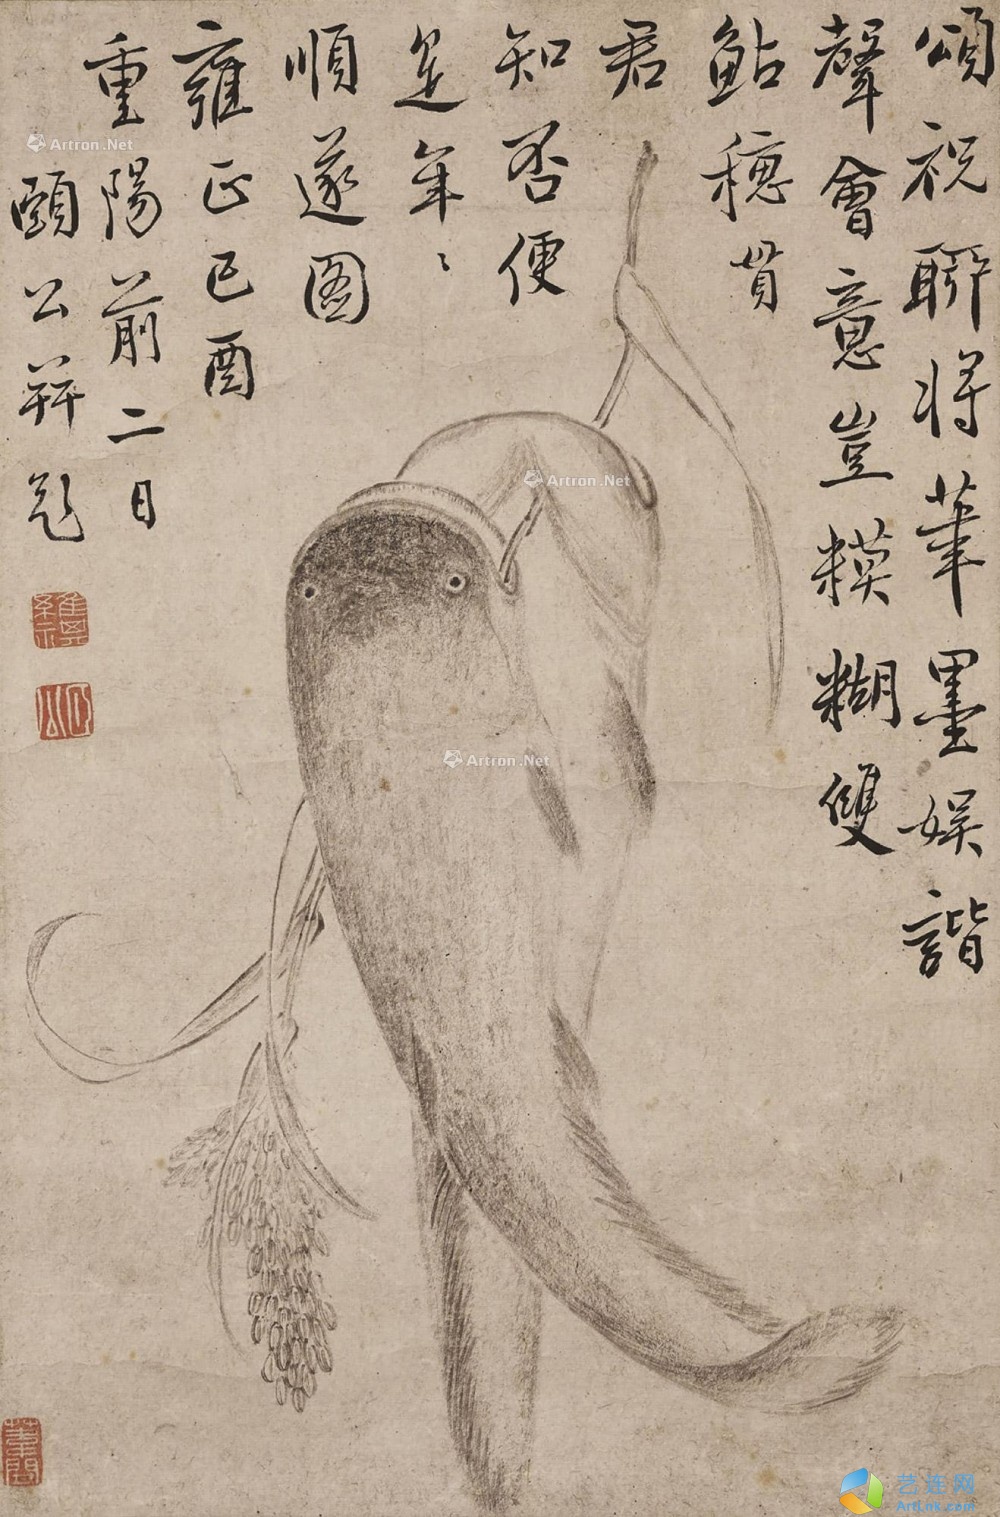 頌祝聊將筆墨娱諧
聲會意豈糢糊雙
鮎穗貫
君
知否便
是年〻
順遂圖
雍正已酉
重陽前二日
頤公并題
Artron.Net
Artron.Net
Artron.Net
艺连网
ArtLnk.com